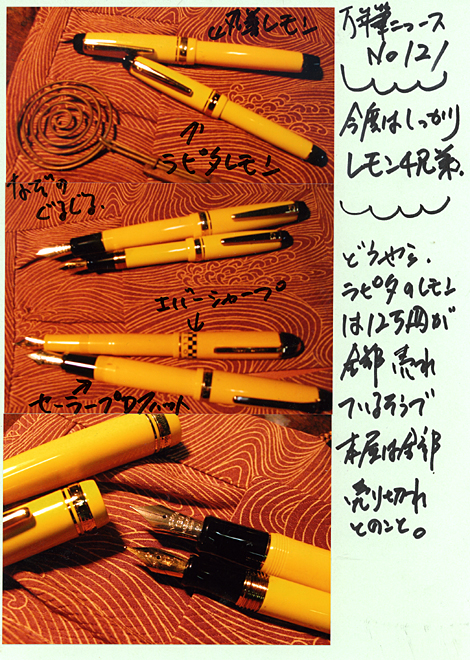 万年筆ニュース
No 121
今度はしっかり
レモン4兄弟.
どうやら.
ラピタのレモン
は12万冊が
全部売れ
ているそうで
本屋は全部
売り切れ
とのこと。
レモン
ラピタレモン
なぞの
ぐるじる.
エバーシャープ
セーラープロフィット